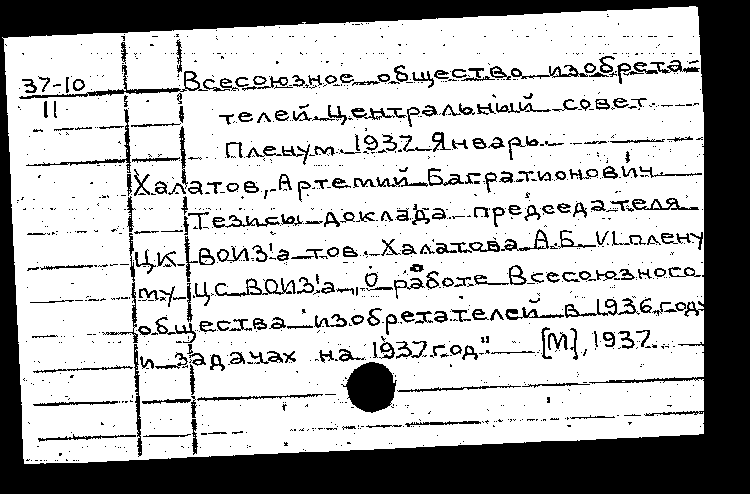 37-10
11
Всесоюзное общество изобрета-
телей. Центральный совет.
Пленум. 1937. Январь.
Халатов, Артемий Багратионович.
Тезисы доклада председателя
ЦК ВОИЗ'а тов. Халатова А.Б. VI плену
му ЦС ВОИЗ'а „О работе Всесоюзного
общества изобретателей в 1936 году
и задачах на 1937 год" [М], 1937.